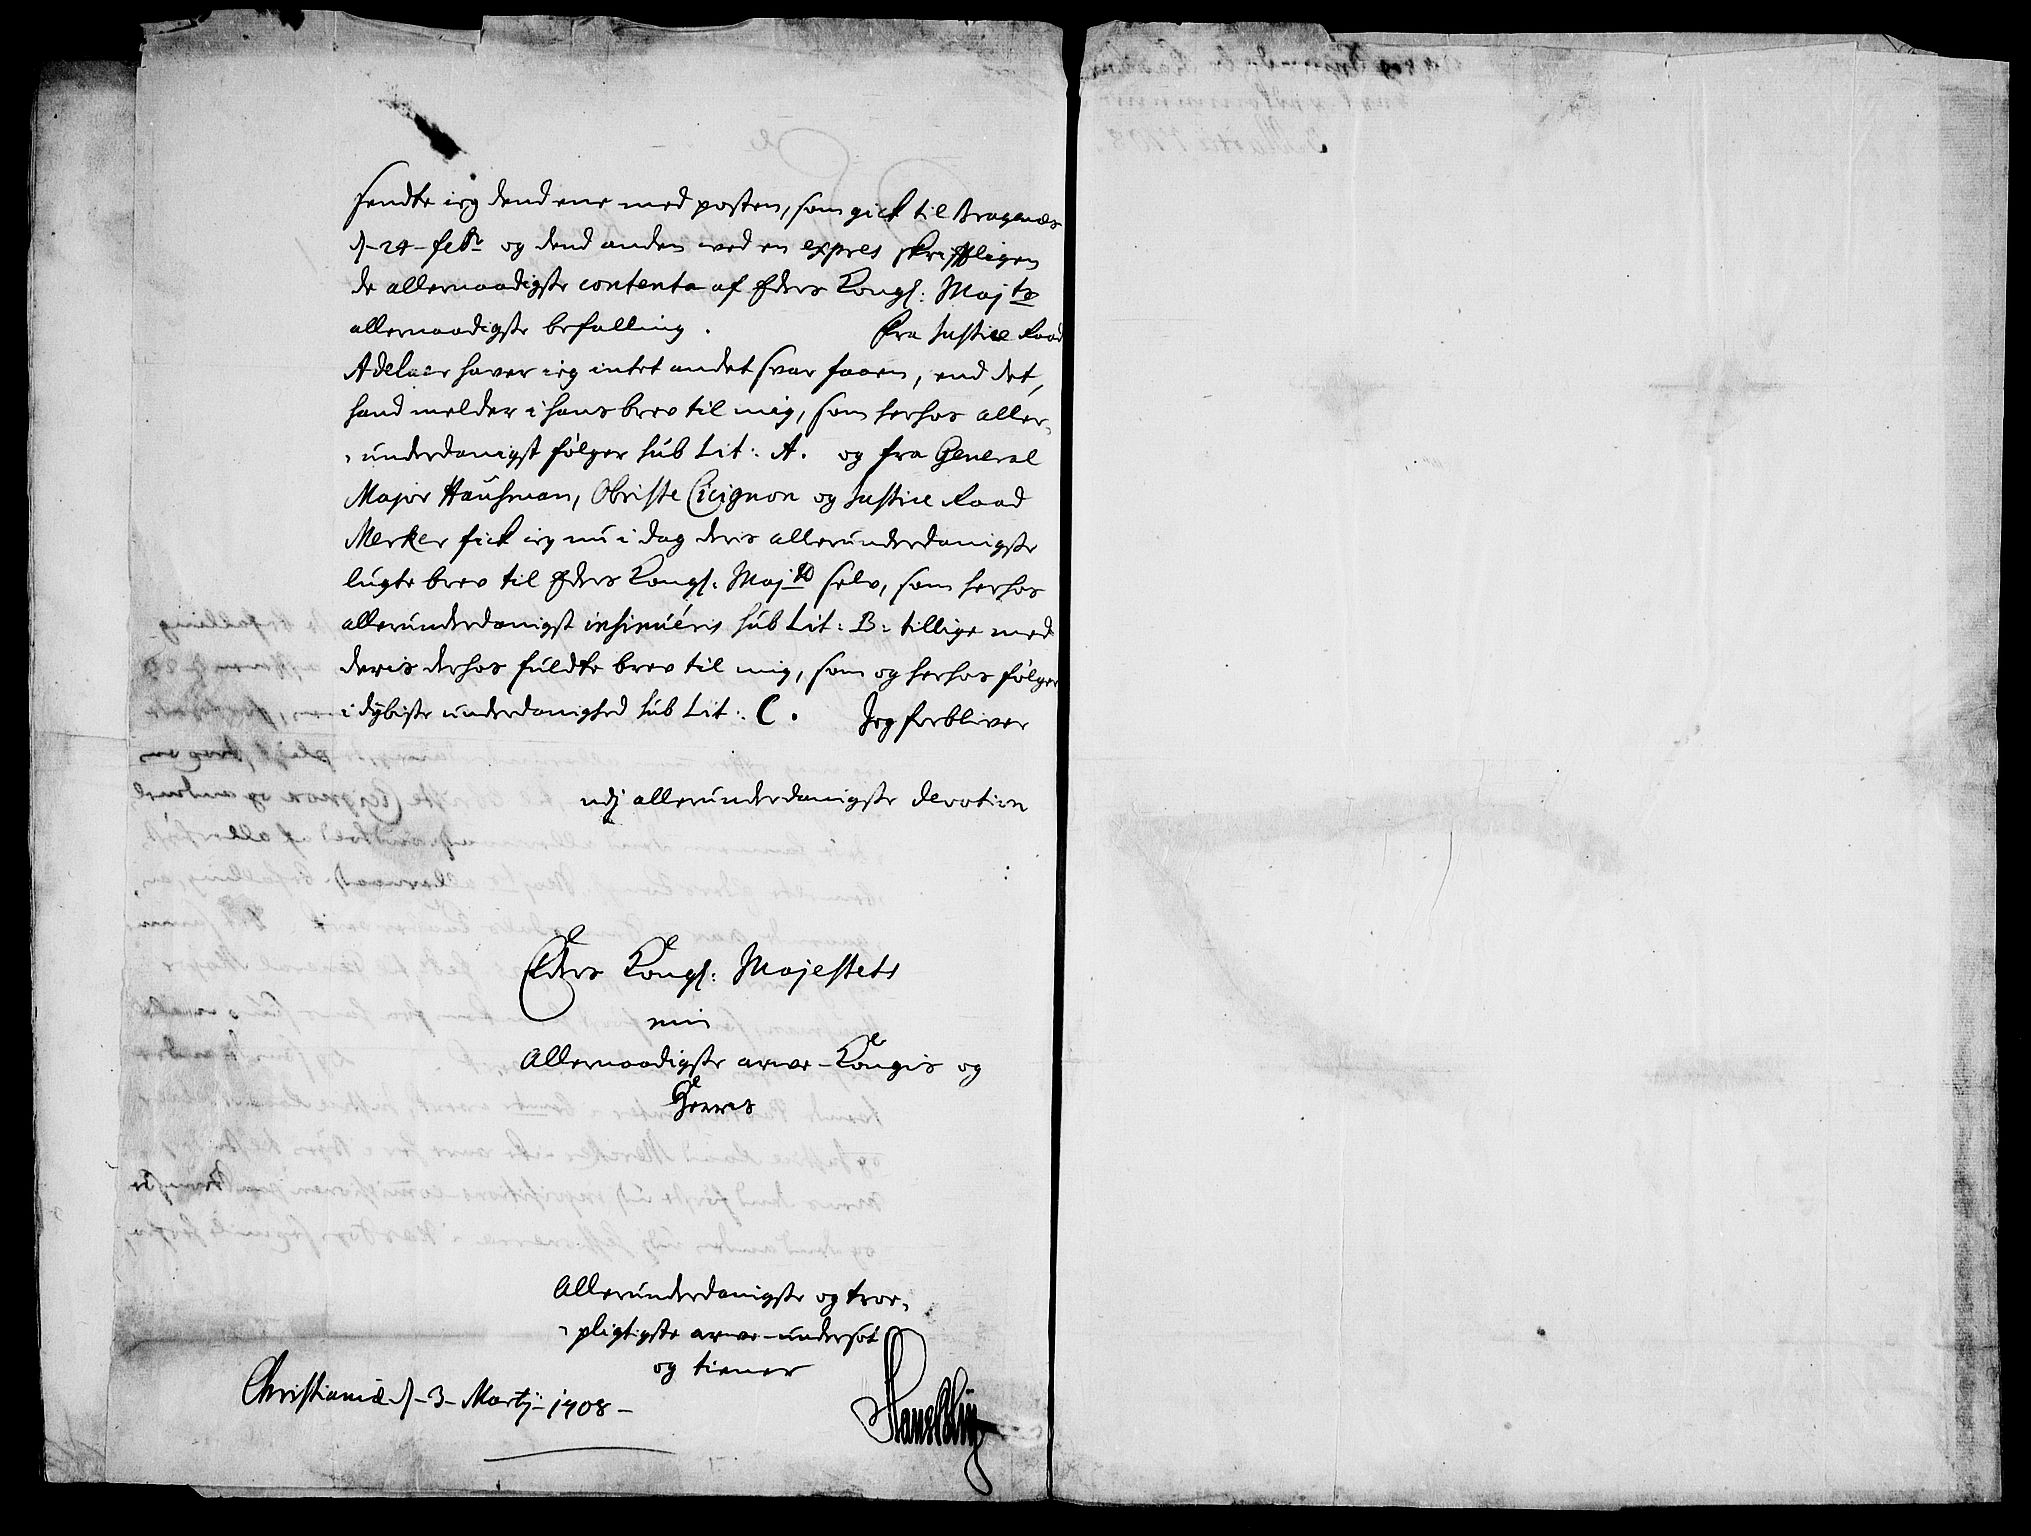 sendte ieg dend ene med posten, som gick til Bragenæs
d. 24 febr. og dend anden ved en expres skrifftligen
de allernaadigste contenta af Eders Kongl: Majts
allernaadigste befalling. Fra Justice Raad
Adelaer haver ieg intet andet svar faaen, end det,
hand melder i hans brev til mig, som herhos aller-
-underdanigst følger sub Lit: A. og fra General
Major Hausman, Obriste Cicignon og Justice Raad
Merker fick ieg nu i dag deris allerunderdanigste
lugte brev til Eders Kongl: Majts selv, som herhos
allerunderdanigst insinuéris sub Lit: B: tillige med
deris derhos fuldte brev til mig, som og herhos følger
i dybiste underdanighed sub Lit: C. Jeg forbliver
udj allerunderdanigste devotion
Eders Kongl: Majestets
min
Allernaadigste arve-Kongis og
Herris
Allerunderdanigste og troe-
-pligtigste arve-undersot
og tiener
Christiania d. 3 Martij 1708